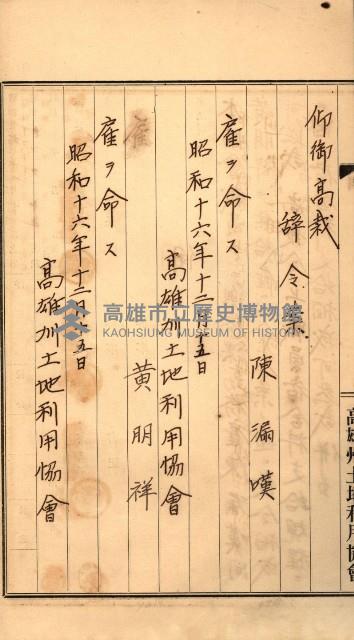 仰御高裁
辞令案
陳漏嘆
雇ヲ命ス
昭和十六年十二月十五日
高雄州土地利用協會
黄明祥
雇ヲ命ス
昭和十六年十二月十五日
高雄州土地利用協會
高雄州土地利用協會
高雄市立歷史博物館
KAOHSIUNG MUSEUM OF HISTORY